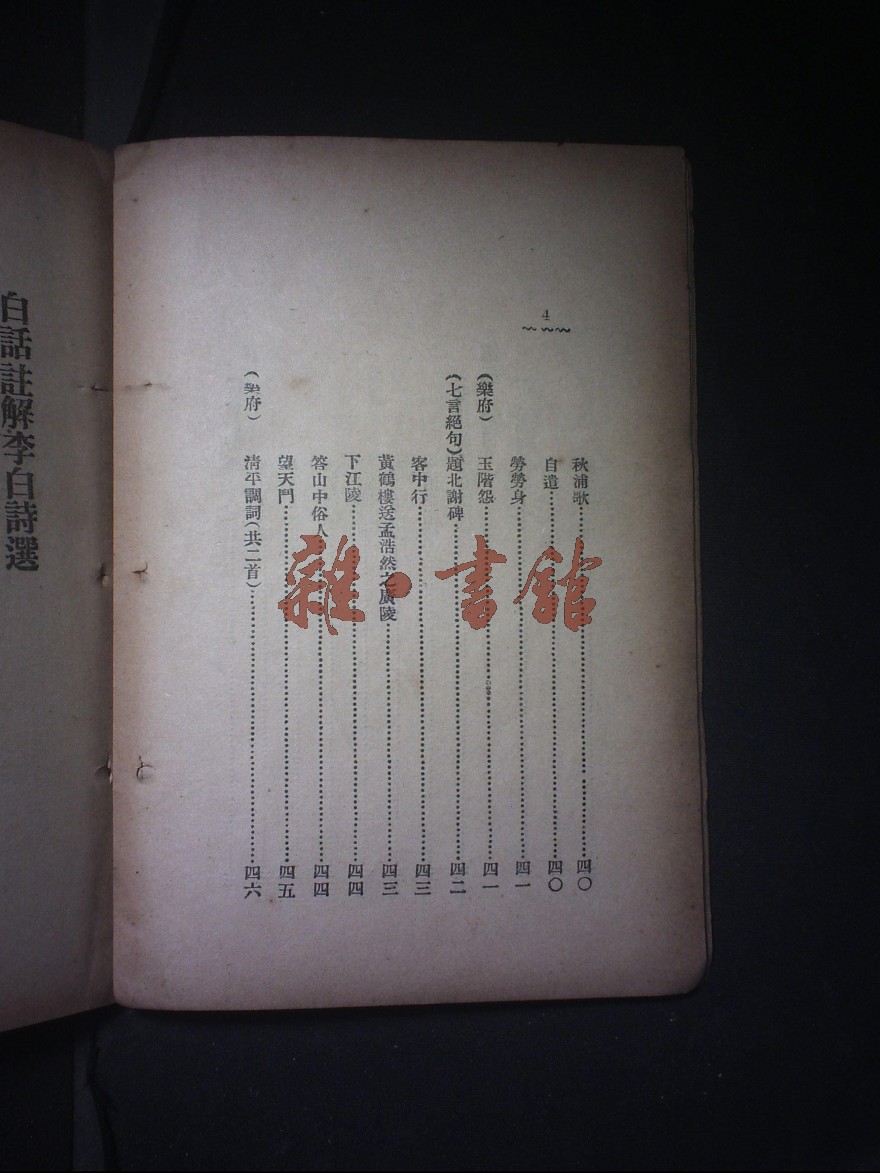 4
秋浦歌……四〇
自遣……四〇
勞勞身……四一
（樂府）玉階怨……四一
（七言絕句）題北謝碑……四二
客中行……四三
黃鶴樓送孟浩然之廣陵……四三
下江陵……四四
答山中俗人……四四
望天門……四五
（樂府）清平調詞（共二首）……四六
白話註解李白詩選
雜·書館